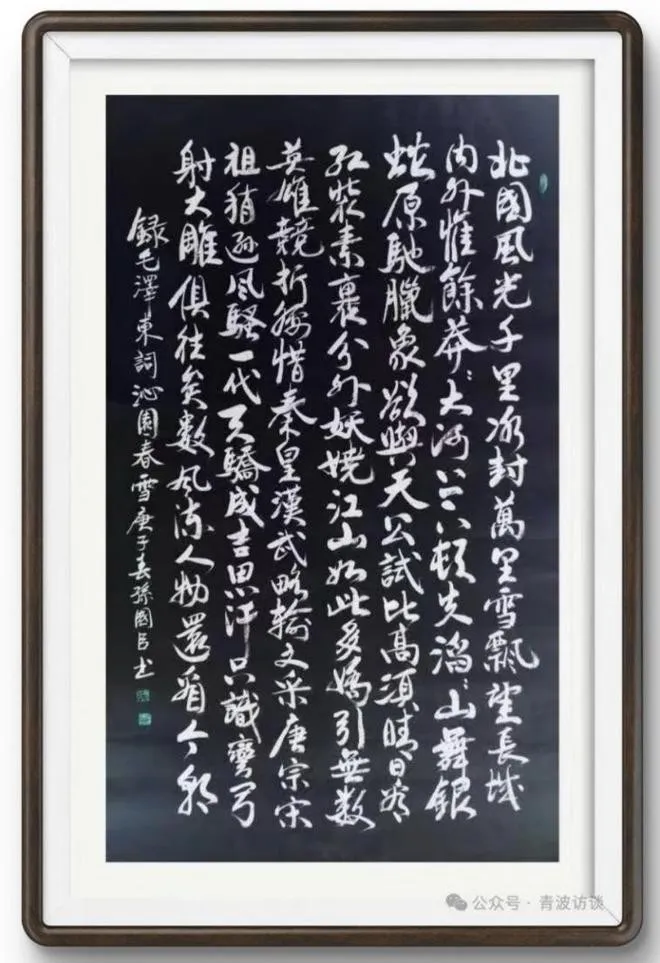 北國風光千里冰封萬里雪飄望長城
內外惟餘莽〻大河上下頓失滔〻山舞銀
蛇原馳臘象欲與天公試比高須晴日看
紅裝素裹分外妖嬈江山如此多嬌引無數
英雄競折腰惜秦皇漢武略輸文采唐宗宋
祖稍遜風騷一代天驕成吉思汗只識彎弓
射大雕俱往矣數風流人物還看今朝
錄毛澤東詞沁園春雪庚子春孫國书
公众号·青波访谈